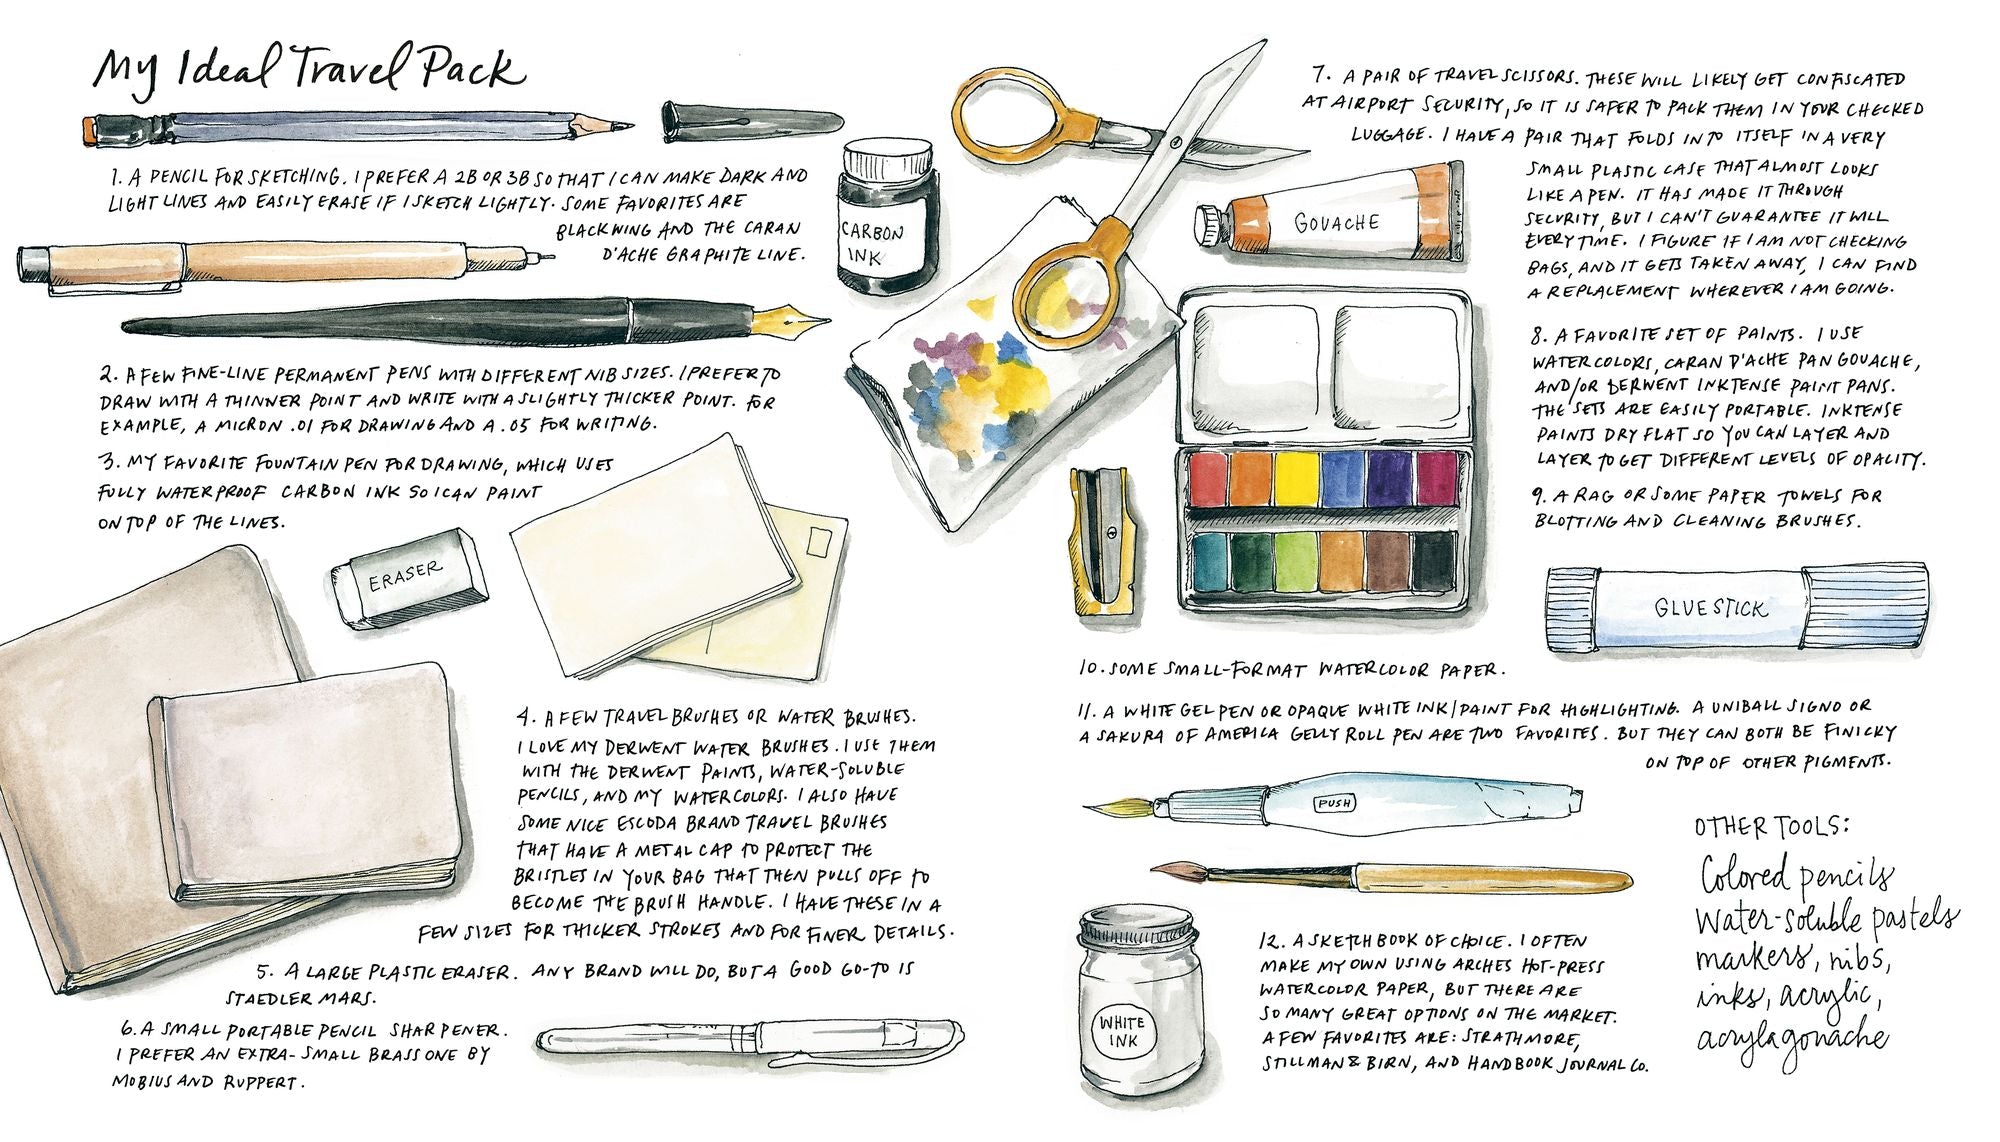 My Ideal Travel Pack
1. A PENCIL FOR SKETCHING. I PREFER A 2B OR 3B SO THAT I CAN MAKE DARK AND
LIGHT LINES AND EASILY ERASE IF I SKETCH LIGHTLY. SOME FAVORITES ARE
BLACKWING AND THE CARAN
D'ACHE GRAPHITE LINE.
CARBON
INK
2. A FEW FINE-LINE PERMANENT PENS WITH DIFFERENT NIB SIZES. I PREFER TO
DRAW WITH A THINNER POINT AND WRITE WITH A SLIGHTLY THICKER POINT. FOR
EXAMPLE, A MICRON .01 FOR DRAWING AND A .05 FOR WRITING.
3. MY FAVORITE FOUNTAIN PEN FOR DRAWING, WHICH USES
FULLY WATERPROOF CARBON INK SO I CAN PAINT
ON TOP OF THE LINES.
ERASER
4. A FEW TRAVEL BRUSHES OR WATER BRUSHES.
I LOVE MY DERWENT WATER BRUSHES. I USE THEM
WITH THE DERWENT PAINTS, WATER-SOLUBLE
PENCILS, AND MY WATERCOLORS. I ALSO HAVE
SOME NICE ESCODA BRAND TRAVEL BRUSHES
THAT HAVE A METAL CAP TO PROTECT THE
BRISTLES IN YOUR BAG THAT THEN PULLS OFF TO
BECOME THE BRUSH HANDLE. I HAVE THESE IN A
FEW SIZES FOR THICKER STROKES AND FOR FINER DETAILS.
5. A LARGE PLASTIC ERASER. ANY BRAND WILL DO, BUT A GOOD GO-TO IS
STAEDLER MARS.
6. A SMALL PORTABLE PENCIL SHARPENER.
I PREFER AN EXTRA-SMALL BRASS ONE BY
MOBIUS AND RUPPERT.
7. A PAIR OF TRAVEL SCISSORS. THESE WILL LIKELY GET CONFISCATED
AT AIRPORT SECURITY, SO IT IS SAFER TO PACK THEM IN YOUR CHECKED
LUGGAGE. I HAVE A PAIR THAT FOLDS INTO ITSELF IN A VERY
SMALL PLASTIC CASE THAT ALMOST LOOKS
LIKE A PEN. IT HAS MADE IT THROUGH
SECURITY, BUT I CAN'T GUARANTEE IT WILL
EVERY TIME. I FIGURE IF I AM NOT CHECKING
BAGS, AND IT GETS TAKEN AWAY, I CAN FIND
A REPLACEMENT WHEREVER I AM GOING.
GOUACHE
8. A FAVORITE SET OF PAINTS. I USE
WATERCOLORS, CARAN D'ACHE PAN GOUACHE,
AND/OR DERWENT INKTENSE PAINT PANS.
THE SETS ARE EASILY PORTABLE. INKTENSE
PAINTS DRY FLAT SO YOU CAN LAYER AND
LAYER TO GET DIFFERENT LEVELS OF OPACITY.
9. A RAG OR SOME PAPER TOWELS FOR
BLOTTING AND CLEANING BRUSHES.
GLUE STICK
10. SOME SMALL-FORMAT WATERCOLOR PAPER.
11. A WHITE GEL PEN OR OPAQUE WHITE INK/PAINT FOR HIGHLIGHTING. A UNIBALL SIGNO OR
A SAKURA OF AMERICA GELLY ROLL PEN ARE TWO FAVORITES. BUT THEY CAN BOTH BE FINICKY
ON TOP OF OTHER PIGMENTS.
PUSH
WHITE
INK
12. A SKETCHBOOK OF CHOICE. I OFTEN
MAKE MY OWN USING ARCHES HOT-PRESS
WATERCOLOR PAPER, BUT THERE ARE
SO MANY GREAT OPTIONS ON THE MARKET.
A FEW FAVORITES ARE: STRATHMORE,
STILLMAN & BIRN, AND HANDBOOK JOURNAL CO.
OTHER TOOLS:
Colored pencils
Water-soluble pastels
markers, nibs,
inks, acrylic,
acryla gouache